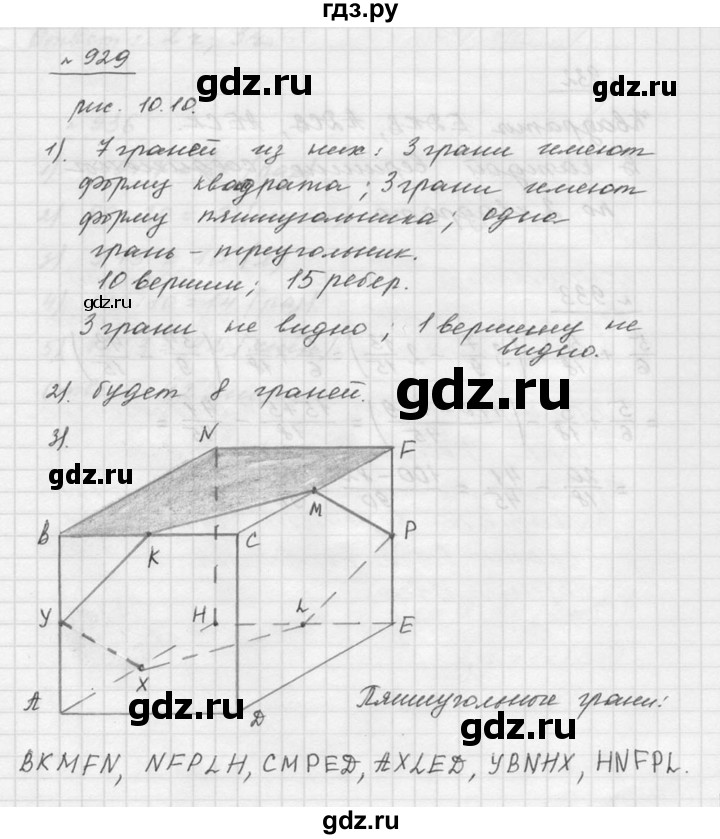 гдз.ру
№ 929
gdz.ru
gdz.ru
рис. 10.10.
1). 7 граней из них: 3 грани имеют
форму квадрата; 3 грани имеют
форму пятиугольника; одна
грань - треугольник.
gdz.ru
10 вершин; 15 ребер.
gdz.ru
3 грани не видно; 1 вершину не
видно.
2). будет 8 граней.
gdz.ru
3).
gdz.ru
N F
M
B K C P
У H L E
X
A D
gdz.ru
Пятиугольные грани:
gdz.ru
BKMFN, NFPLH, CMPED, AXLED, YBNHX, HNFPL.
gdz.ru